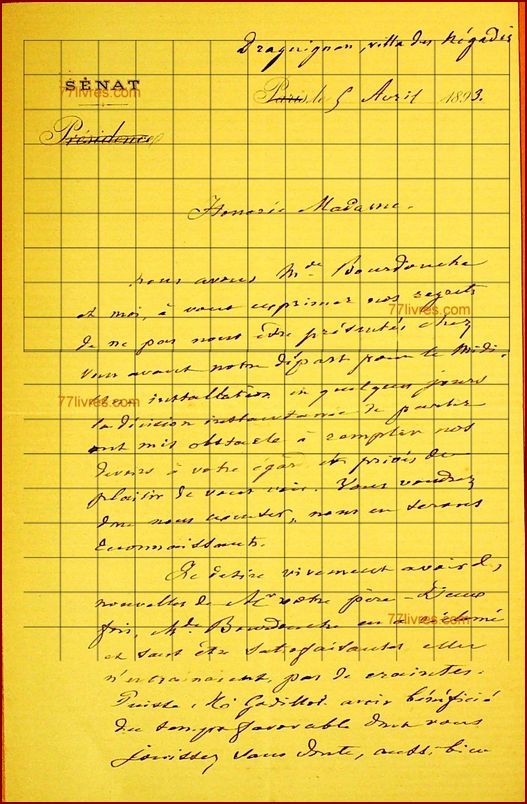 Draguignan, villa des Négadis
SÉNAT
77livres.com
Paris, le 5 Avril 1893.
Présidence
Honorée Madame.
nous avons Mde Bourdouche
et moi, à vous exprimer nos regrets
77livres.com
de ne pas nous être présentés chez
vous avant notre départ pour le Midi.
77livres.com
installation en quelques jours
la décision instantanée de partir
ont mis obstacle à remplir nos
devoirs à votre égard et privés du
plaisir de vous voir. Vous voudrez
donc nous excuser, nous en serons
reconnaissants.
Je désire vivement avoir des
nouvelles de Mr votre père. Deux
77livres.com
fois, Mde Bourdouche en a réclamé
et sans être satisfaisantes elles
n'entrainaient pas de craintes.
Puisse Mr Godillot avoir bénéficié
du temps favorable dont vous
jouissez sans doute, aussi bien